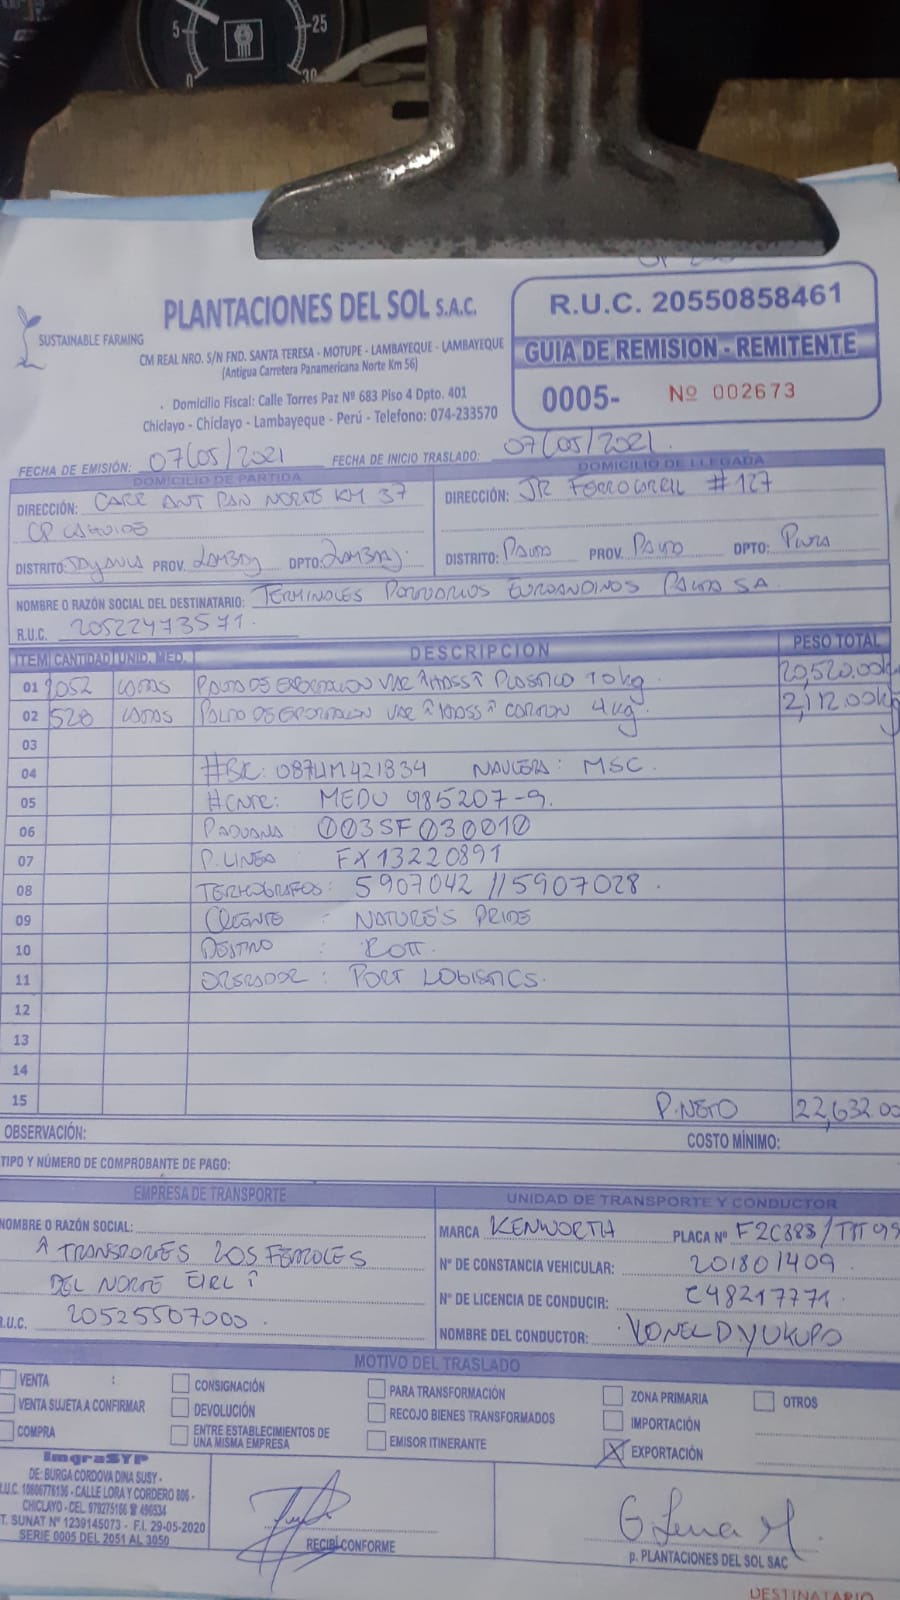 5
25
0
30
PLANTACIONES DEL SOL S.A.C.
SUSTAINABLE FARMING
CM REAL NRO. S/N FND. SANTA TERESA - MOTUPE - LAMBAYEQUE - LAMBAYEQUE
(Antigua Carretera Panamericana Norte Km 56)
. Domicilio Fiscal: Calle Torres Paz Nº 683 Piso 4 Dpto. 401
Chiclayo - Chiclayo - Lambayeque - Perú - Telefono: 074-233570
R.U.C. 20550858461
GUIA DE REMISION - REMITENTE
0005- Nº 002673
FECHA DE EMISIÓN: 07/05/2021 FECHA DE INICIO TRASLADO: 07/05/2021.
DOMICILIO DE PARTIDA
DIRECCIÓN: CARR ANT PAN NORTE KM 37
CP CAHUIDE
DISTRITO: PROV. DPTO:
DOMICILIO DE LLEGADA
DIRECCIÓN: JR FERROCARRIL # 127
DISTRITO: PAITA PROV. PAITA DPTO: PIURA
NOMBRE O RAZÓN SOCIAL DEL DESTINATARIO: TERMINALES PORTUARIOS EUROANDINOS PAITA SA
R.U.C. 20522473571.
ITEM CANTIDAD UNID. MED. DESCRIPCION PESO TOTAL
01 2052 CAJAS PALTA DE EXPORTACION VAR "HASS" PLASTICO 10 kg. 20,520.00kg
02 528 CAJAS PALTA DE EXPORTACION VAR "HASS" CARTON 4 kg. 2,112.00kg
03
04 #BK: 087LIM421834 NAVIERA: MSC.
05 #CNTR: MEDU 985207-9.
06 P. ADUANA: 003SF030010
07 P. LINEA FX13220891
08 TERMOGRAFOS: 5907042 // 5907028.
09 CLIENTE : NATURE'S PRIDE
10 DESTINO : ROTT.
11 OPERADOR : PORT LOGISTICS.
12
13
14
15 P. NETO 22,632.00
OBSERVACIÓN:
COSTO MÍNIMO:
TIPO Y NÚMERO DE COMPROBANTE DE PAGO:
EMPRESA DE TRANSPORTE
NOMBRE O RAZÓN SOCIAL:
" TRANSPORTES LOS FERROLES
DEL NORTE EIRL "
R.U.C. 20525507000.
UNIDAD DE TRANSPORTE Y CONDUCTOR
MARCA KENWORTH PLACA Nº F2C383/
N° DE CONSTANCIA VEHICULAR: 201801409.
N° DE LICENCIA DE CONDUCIR: C48217771.
NOMBRE DEL CONDUCTOR:
MOTIVO DEL TRASLADO
VENTA :
VENTA SUJETA A CONFIRMAR
COMPRA
CONSIGNACIÓN
DEVOLUCIÓN
ENTRE ESTABLECIMIENTOS DE
UNA MISMA EMPRESA
PARA TRANSFORMACIÓN
RECOJO BIENES TRANSFORMADOS
EMISOR ITINERANTE
ZONA PRIMARIA
IMPORTACIÓN
X EXPORTACIÓN
OTROS
ImgraSYP
DE: BURGA CORDOVA DINA SUSY -
R.U.C. 10806776136 - CALLE LORA Y CORDERO 806 -
CHICLAYO - CEL. 979275166 ☎ 496534
T. SUNAT Nº 1239145073 - F.I. 29-05-2020
SERIE 0005 DEL 2051 AL 3050
RECIBÍ CONFORME
p. PLANTACIONES DEL SOL SAC
DESTINATARIO